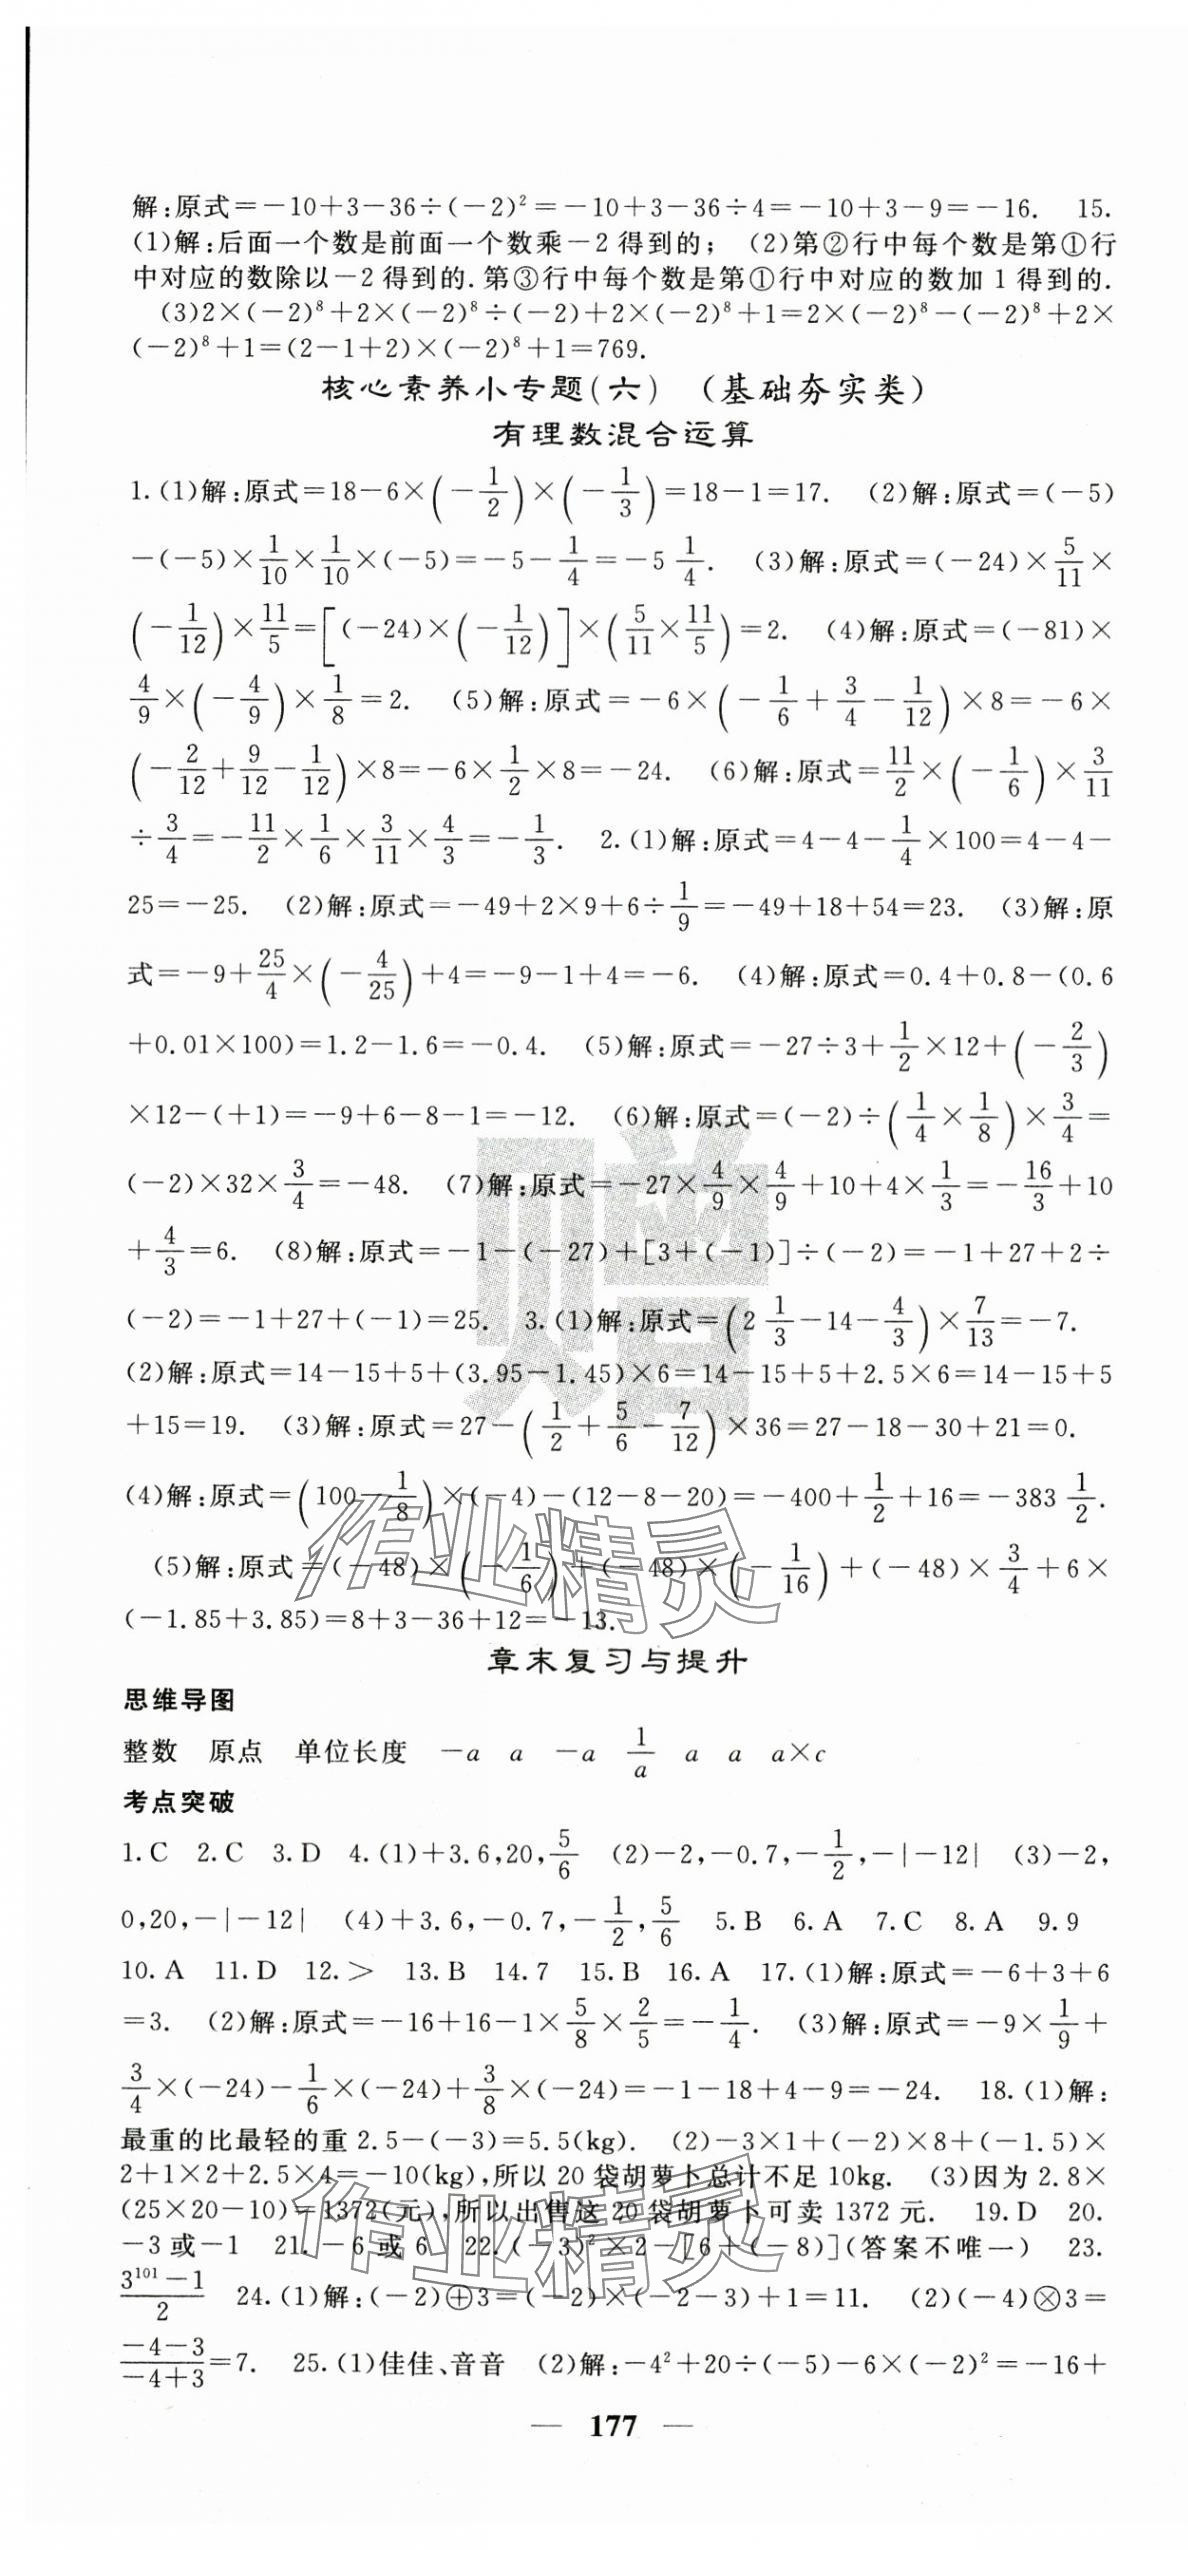 解:原式=-10+3-36÷(-2)²=-10+3-36÷4=-10+3-9=-16. 15.
(1)解:后面一个数是前面一个数乘-2得到的; (2)第②行中每个数是第①行
中对应的数除以-2得到的.第③行中每个数是第①行中对应的数加1得到的.
(3)2×(-2)⁸+2×(-2)⁸÷(-2)+2×(-2)⁸+1=2×(-2)⁸-(-2)⁸+2×
(-2)⁸+1=(2-1+2)×(-2)⁸+1=769.
核心素养小专题(六) (基础夯实类)
有理数混合运算
1.(1)解:原式=18-6×(-1/2)×(-1/3)=18-1=17. (2)解:原式=(-5)
-(-5)×1/10×1/10×(-5)=-5-1/4=-5 1/4. (3)解:原式=(-24)×5/11×
(-1/12)×11/5=[(-24)×(-1/12)]×(5/11×11/5)=2. (4)解:原式=(-81)×
4/9×(-4/9)×1/8=2. (5)解:原式=-6×(-1/6+3/4-1/12)×8=-6×
(-2/12+9/12-1/12)×8=-6×1/2×8=-24. (6)解:原式=11/2×(-1/6)×3/11
÷3/4=-11/2×1/6×3/11×4/3=-1/3. 2.(1)解:原式=4-4-1/4×100=4-4-
25=-25. (2)解:原式=-49+2×9+6÷1/9=-49+18+54=23. (3)解:原
式=-9+25/4×(-4/25)+4=-9-1+4=-6. (4)解:原式=0.4+0.8-(0.6
+0.01×100)=1.2-1.6=-0.4. (5)解:原式=-27÷3+1/2×12+(-2/3)
×12-(+1)=-9+6-8-1=-12. (6)解:原式=(-2)÷(1/4×1/8)×3/4=
(-2)×32×3/4=-48. (7)解:原式=-27×4/9×4/9+10+4×1/3=-16/3+10
+4/3=6. (8)解:原式=-1-(-27)+[3+(-1)]÷(-2)=-1+27+2÷
(-2)=-1+27+(-1)=25. 3.(1)解:原式=(2 1/3-14-4/3)×7/13=-7.
(2)解:原式=14-15+5+(3.95-1.45)×6=14-15+5+2.5×6=14-15+5
+15=19. (3)解:原式=27-(1/2+5/6-7/12)×36=27-18-30+21=0.
(4)解:原式=(100-1/8)×(-4)-(12-8-20)=-400+1/2+16=-383 1/2.
(5)解:原式=(-48)×(-1/6)+(-48)×(-1/16)+(-48)×3/4+6×
(-1.85+3.85)=8+3-36+12=-13.
章末复习与提升
思维导图
整数 原点 单位长度 -a a -a 1/a a a a×c
考点突破
1.C 2.C 3.D 4.(1)+3.6,20,5/6 (2)-2,-0.7,-1/2,-|-12| (3)-2,
0,20,-|-12| (4)+3.6,-0.7,-1/2,5/6 5.B 6.A 7.C 8.A 9.9
10.A 11.D 12.> 13.B 14.7 15.B 16.A 17.(1)解:原式=-6+3+6
=3. (2)解:原式=-16+16-1×5/8×2/5=-1/4. (3)解:原式=-9×1/9+
3/4×(-24)-1/6×(-24)+3/8×(-24)=-1-18+4-9=-24. 18.(1)解:
最重的比最轻的重2.5-(-3)=5.5(kg). (2)-3×1+(-2)×8+(-1.5)×
2+1×2+2.5×4=-10(kg),所以20袋胡萝卜总计不足10kg. (3)因为2.8×
(25×20-10)=1372(元),所以出售这20袋胡萝卜可卖1372元. 19.D 20.
-3或-1 21.-6或6 22.(-3)²×2-[6+(-8)](答案不唯一) 23.
(3¹⁰¹-1)/2 24.(1)解:(-2)⊕3=(-2)×(-2-3)+1=11. (2)(-4)⊗3=
(-4-3)/(-4+3)=7. 25.(1)佳佳、音音 (2)解:-4²+20÷(-5)-6×(-2)²=-16+
— 177 —
赠
作业精灵
作业精灵